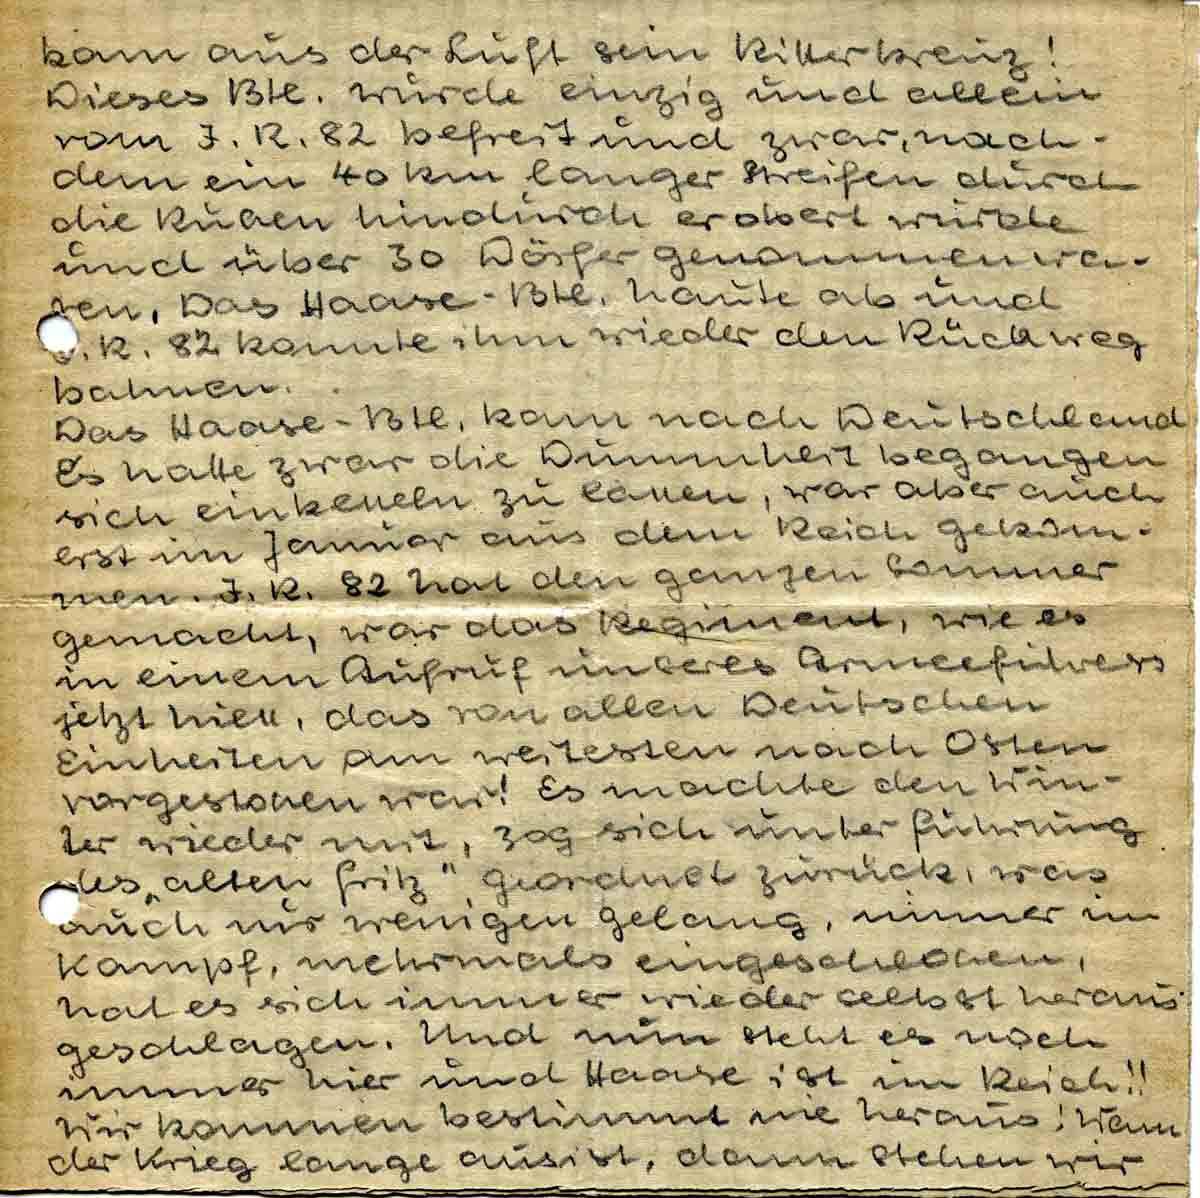 kam aus der Luft sein Ritterkreuz!
Dieses Btl. wurde einzig und allein
vom J. R. 82 befreit und zwar, nach-
dem ein 40 km langer Streifen durch
die Russen hindurch erobert wurde
und über 30 Dörfer genommen wa-
ren. Das Haase-Btl. haute ab und
J. R. 82 konnte ihm wieder den Rückweg
bahnen.
Das Haase-Btl. kam nach Deutschland
Es hatte zwar die Dummheit begangen
sich einkesseln zu lassen, war aber auch
erst im Januar aus dem Reich gekom-
men. J. R. 82 hat den ganzen Sommer
gemacht, war das Regiment, wie es
in einem Aufruf unseres Armeeführers
jetzt hiess, das von allen Deutschen
Einheiten am weitesten nach Osten
vorgestossen war! Es machte den Win-
ter wieder mit, zog sich unter Führung
des „alten Fritz" geordnet zurück, was
auch nur wenigen gelang, immer im
Kampf, mehrmals eingeschlossen,
hat es sich immer wieder selbst heraus
geschlagen. Und nun steht es noch
immer hier und Haase ist im Reich!!
Wir kommen bestimmt nie heraus! Wenn
der Krieg lange aus ist, dann stehen wir